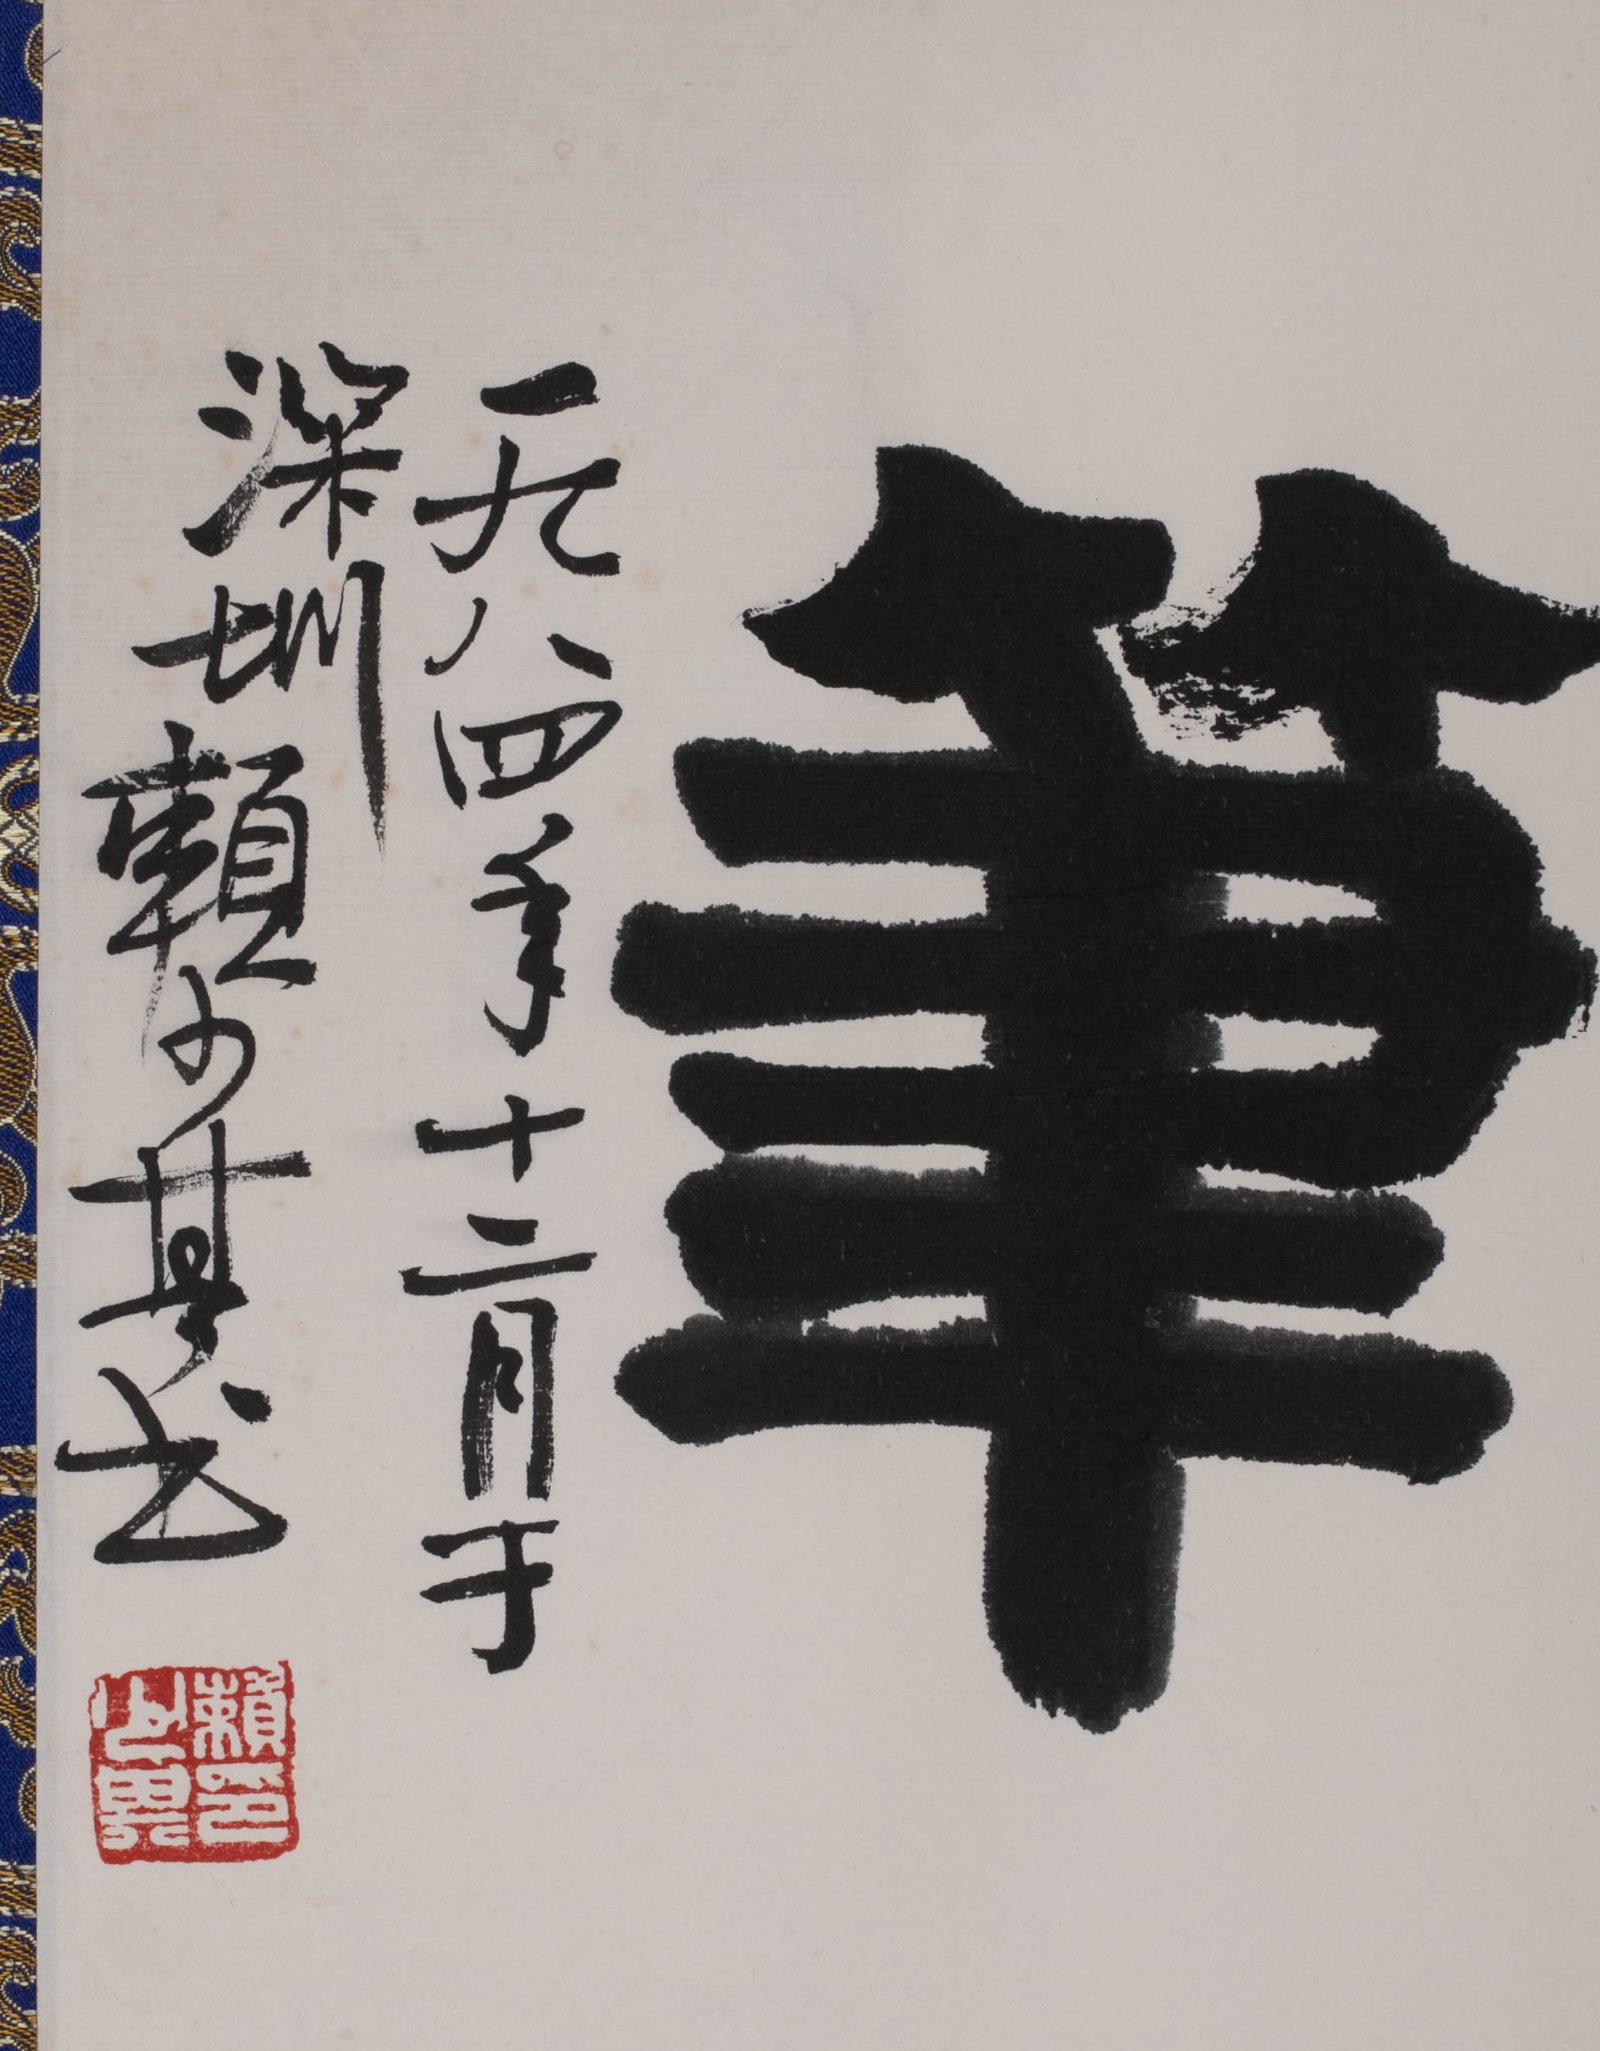 筆
一九八四年十二月于
深圳賴少其書
賴印
少其